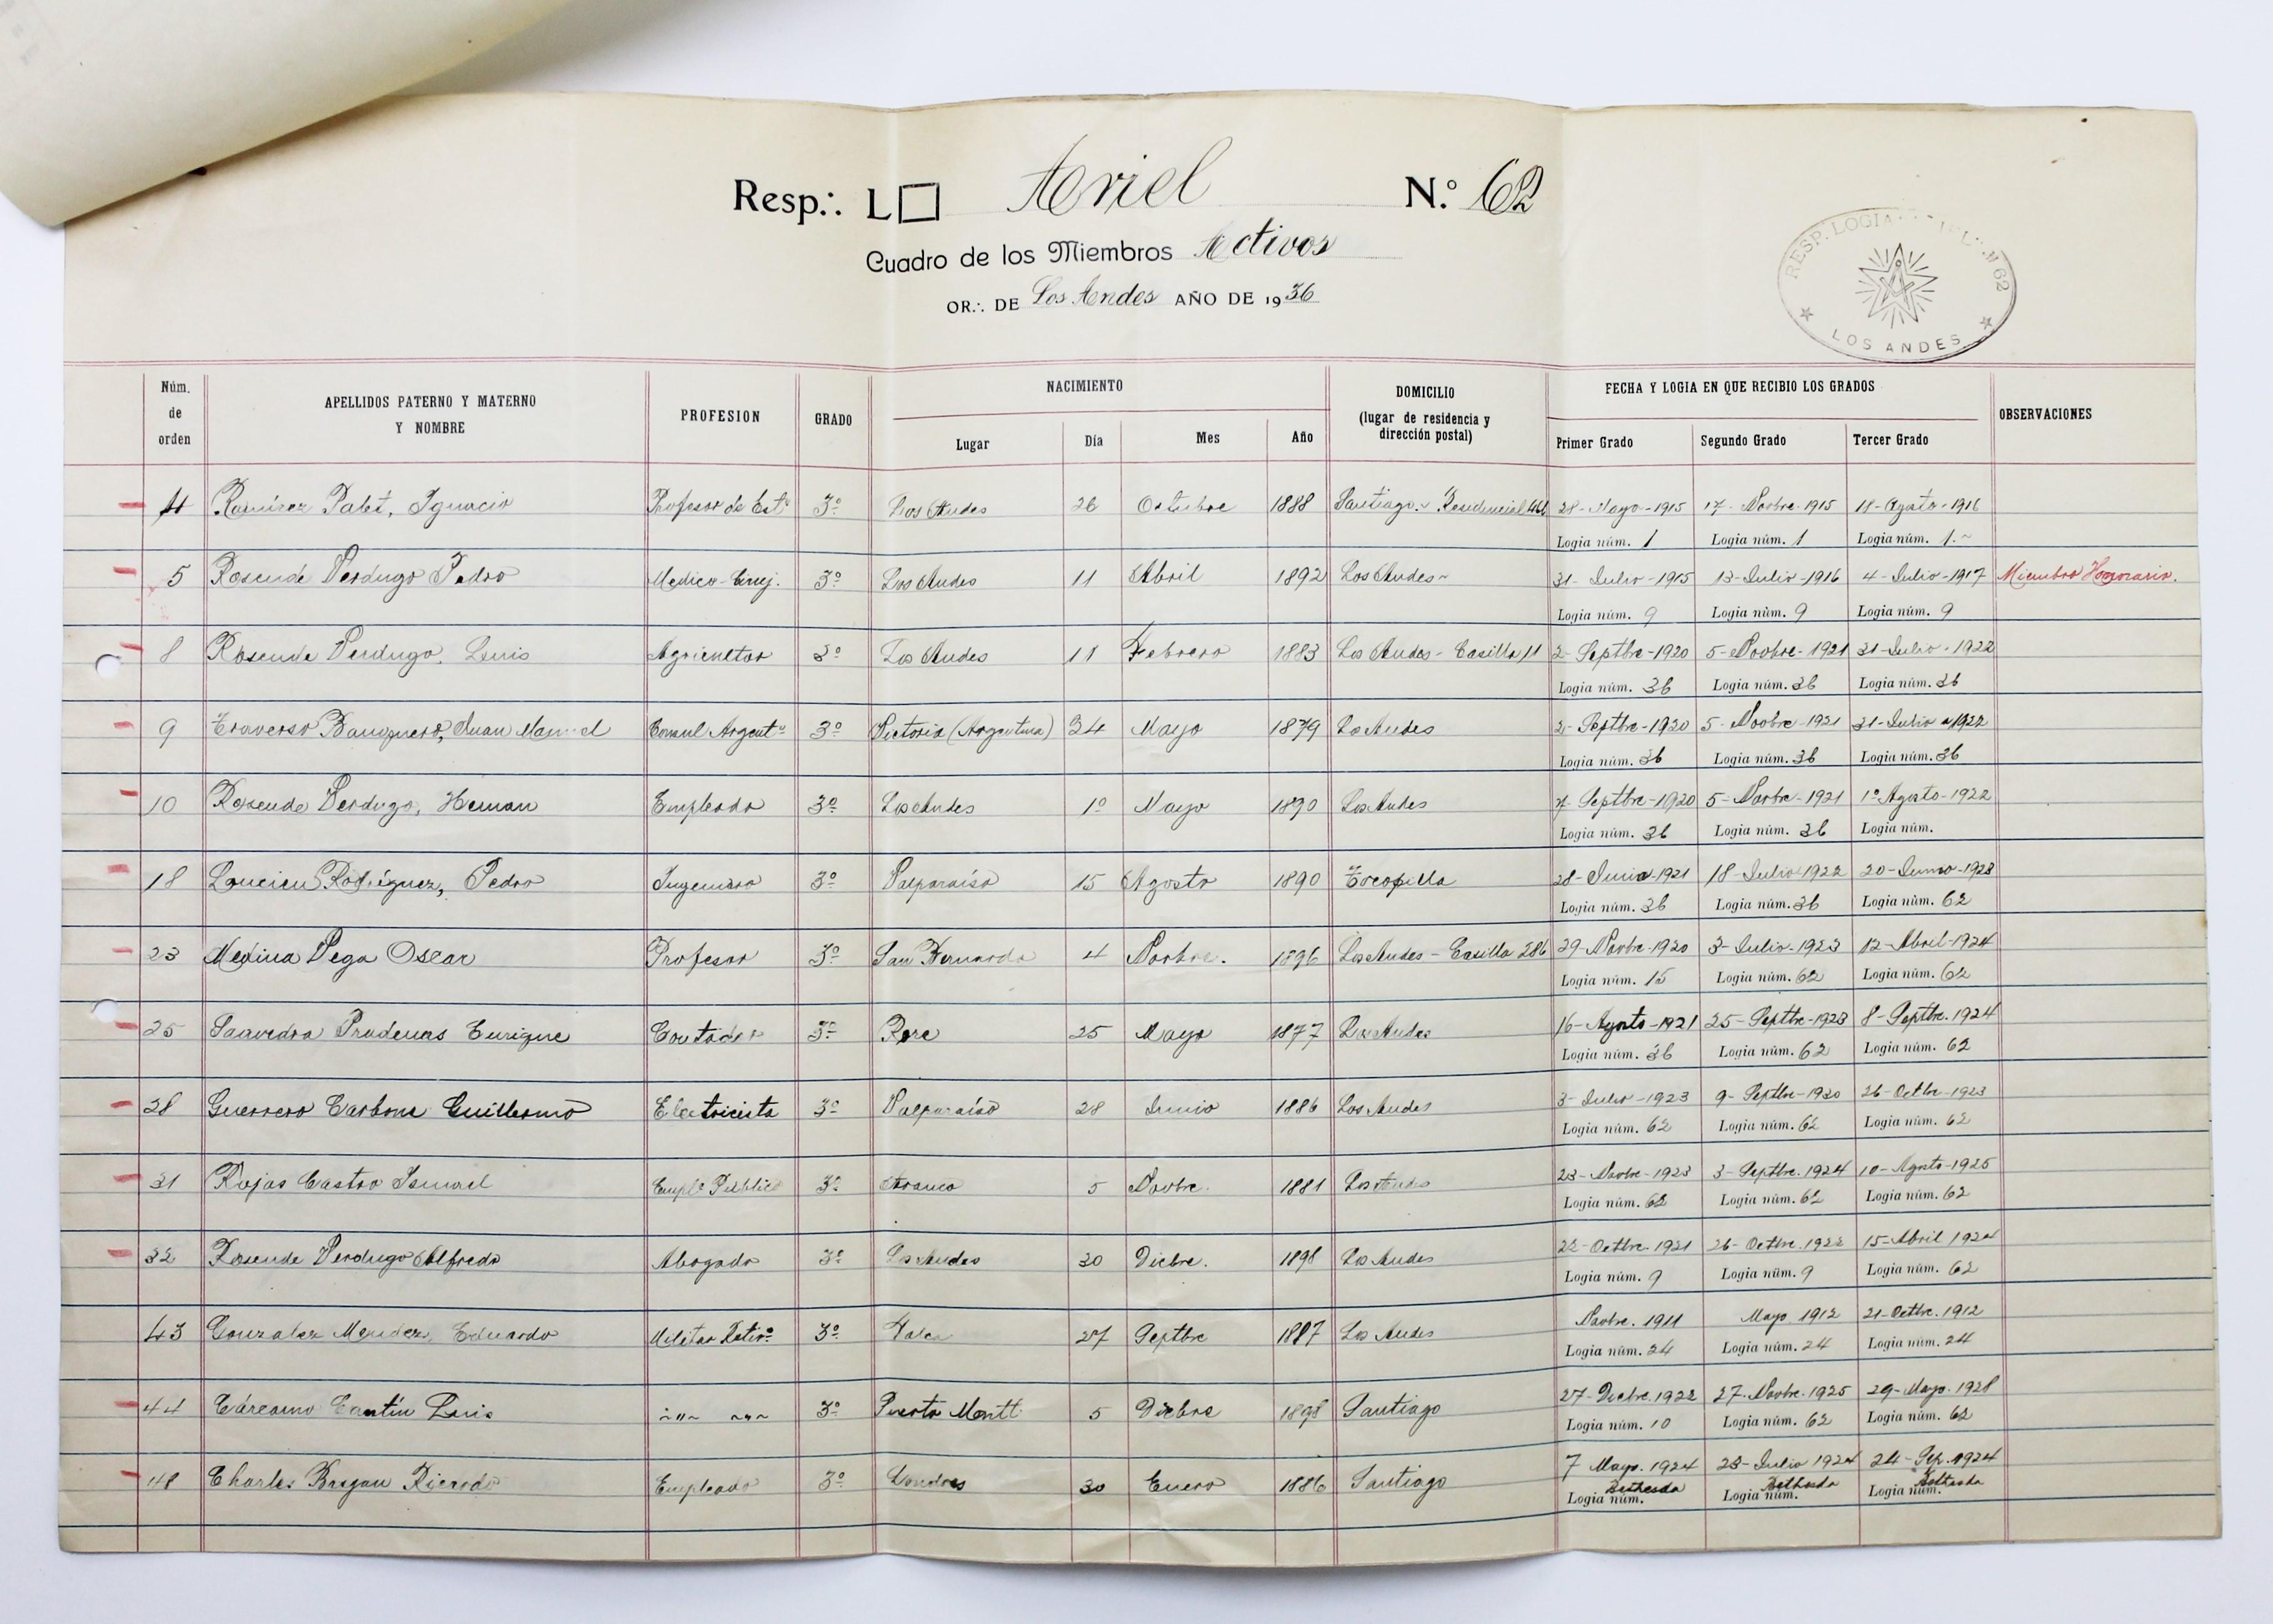 Resp∴ L□ Ariel N.º 62
Cuadro de los Miembros Activos
OR∴ DE Los Andes AÑO DE 1936
RESP. LOGIA 62
LOS ANDES
Núm. de orden
APELLIDOS PATERNO Y MATERNO Y NOMBRE
PROFESION
GRADO
NACIMIENTO
Lugar Día Mes Año
DOMICILIO
(lugar de residencia y dirección postal)
FECHA Y LOGIA EN QUE RECIBIO LOS GRADOS
Primer Grado Segundo Grado Tercer Grado
OBSERVACIONES
4 Ramírez Ignacio Profesor de Est. 3º Los Andes 26 Octubre 1888 Santiago. Residencial 28-Mayo-1915 17-Novbre-1915 18-Agosto-1916
Logia núm. 1 Logia núm. 1 Logia núm. 1.
5 Rosende Verdugo Pedro Medico-Ciruj. 3º Los Andes 11 Abril 1892 Los Andes 31-Julio-1915 13-Julio-1916 4-Julio-1917 Miembro Honorario.
Logia núm. 9 Logia núm. 9 Logia núm. 9
8 Rosende Verdugo, Luis Agricultor 3º Los Andes 11 Febrero 1883 Los Andes-Casilla 11 2-Septbre-1920 5-Novbre-1921 31-Julio-1922
Logia núm. 36 Logia núm. 36 Logia núm. 36
9 Traverso Juan Manuel Consul Argentº 3º Victoria (Argentina) 24 Mayo 1879 Los Andes 2-Septbre-1920 5-Novbre-1921 31-Julio-1922
Logia núm. 36 Logia núm. 36 Logia núm. 36
10 Rosende Verdugo, Hernan Empleado 3º Los Andes 1º Mayo 1890 Los Andes 7-Septbre-1920 5-Novbre-1921 1º Agosto-1922
Logia núm. 36 Logia núm. 36 Logia núm.
18 Rodríguez, Pedro Ingeniero 3º Valparaíso 15 Agosto 1890 Tocopilla 28-Junio-1921 18-Julio-1922 20-Junio-1923
Logia núm. 36 Logia núm. 36 Logia núm. 62
23 Medina Vega Oscar Profesor 3º San Bernardo 4 Novbre. 1896 Los Andes-Casilla 286 29-Novbre-1920 3-Julio-1923 12-Abril-1924
Logia núm. 15 Logia núm. 62 Logia núm. 62
25 Saavedra Enrique Contador 3º Rere 25 Mayo 1877 Los Andes 16-Agosto-1921 25-Septbre-1923 8-Septbre. 1924
Logia núm. 36 Logia núm. 62 Logia núm. 62
28 Guerrero Carbone Guillermo Electricista 3º Valparaíso 28 Junio 1886 Los Andes 3-Julio-1923 9-Septbre-1930 26-Octbre-1923
Logia núm. 62 Logia núm. 62 Logia núm. 62
31 Rojas Castro Ismael Emplº Público 3º Arauco 5 Novbre. 1881 Los Andes 23-Novbre-1923 3-Septbre. 1924 10-Agosto-1925
Logia núm. 62 Logia núm. 62 Logia núm. 62
32 Rosende Verdugo Alfredo Abogado 3º Los Andes 30 Dicbre. 1898 Los Andes 22-Octbre. 1921 26-Octbre. 1922 15-Abril 1924
Logia núm. 9 Logia núm. 9 Logia núm. 62
43 Gonzalez Mendez, Eduardo Militar Retirº 3º Talca 27 Septbre 1887 Los Andes Novbre. 1911 Mayo 1912 21-Octbre. 1912
Logia núm. 24 Logia núm. 24 Logia núm. 24
44 Cárcamo Cantín Luis -"- -"- 3º Puerto Montt 5 Dicbre 1898 Santiago 27-Dicbre. 1922 27-Novbre. 1925 29-Mayo. 1928
Logia núm. 10 Logia núm. 62 Logia núm. 62
48 Charles Ricardo Empleado 3º Londres 30 Enero 1886 Santiago 7 Mayo. 1924 23-Julio 1924 24-Sep. 1924
Logia núm. Bethesda Logia núm. Bethesda Logia núm. Bethesda